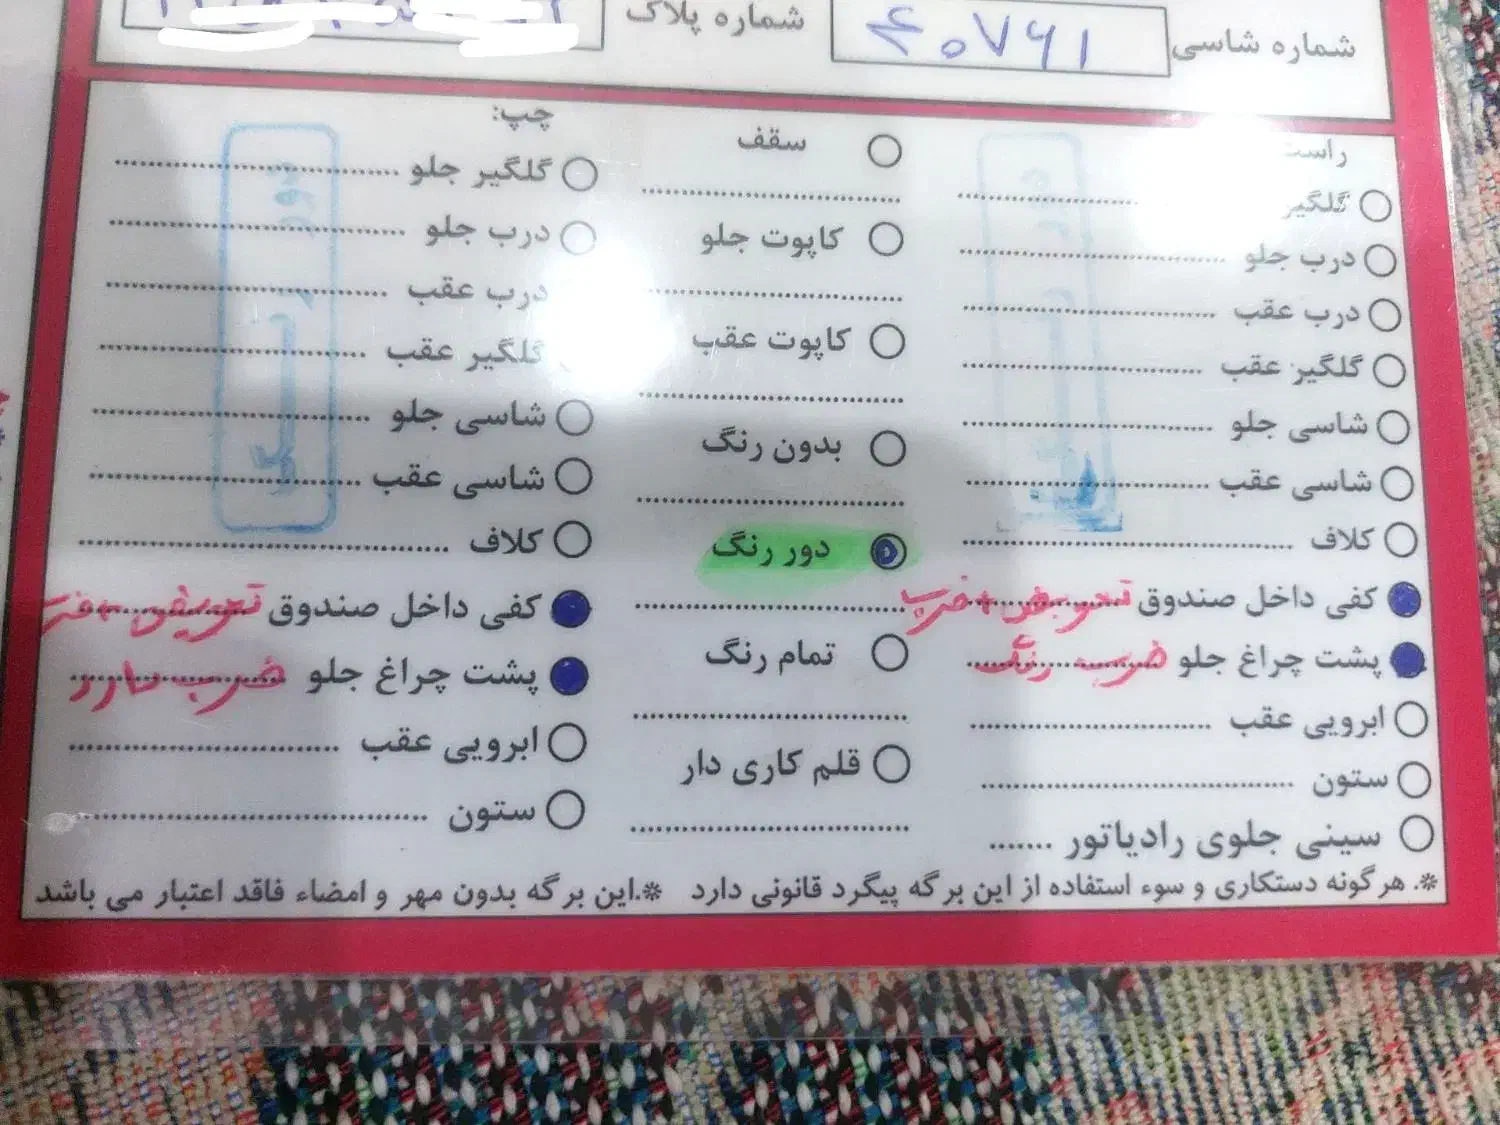 شماره شاسی ۴۰۷۶۱
شماره پلاک
راست
گلگیر
درب جلو
درب عقب
گلگیر عقب
شاسی جلو
شاسی عقب
کلاف
کفی داخل صندوق تعویض + ضرب
پشت چراغ جلو ضرب رنگ
ابرویی عقب
ستون
سینی جلوی رادیاتور
سقف
کاپوت جلو
کاپوت عقب
بدون رنگ
دور رنگ
تمام رنگ
قلم کاری دار
چپ:
گلگیر جلو
درب جلو
درب عقب
گلگیر عقب
شاسی جلو
شاسی عقب
کلاف
کفی داخل صندوق تعویض + ضرب
پشت چراغ جلو ضرب دارد
ابرویی عقب
ستون
*. هرگونه دستکاری و سوء استفاده از این برگه پیگرد قانونی دارد *.این برگه بدون مهر و امضاء فاقد اعتبار می باشد